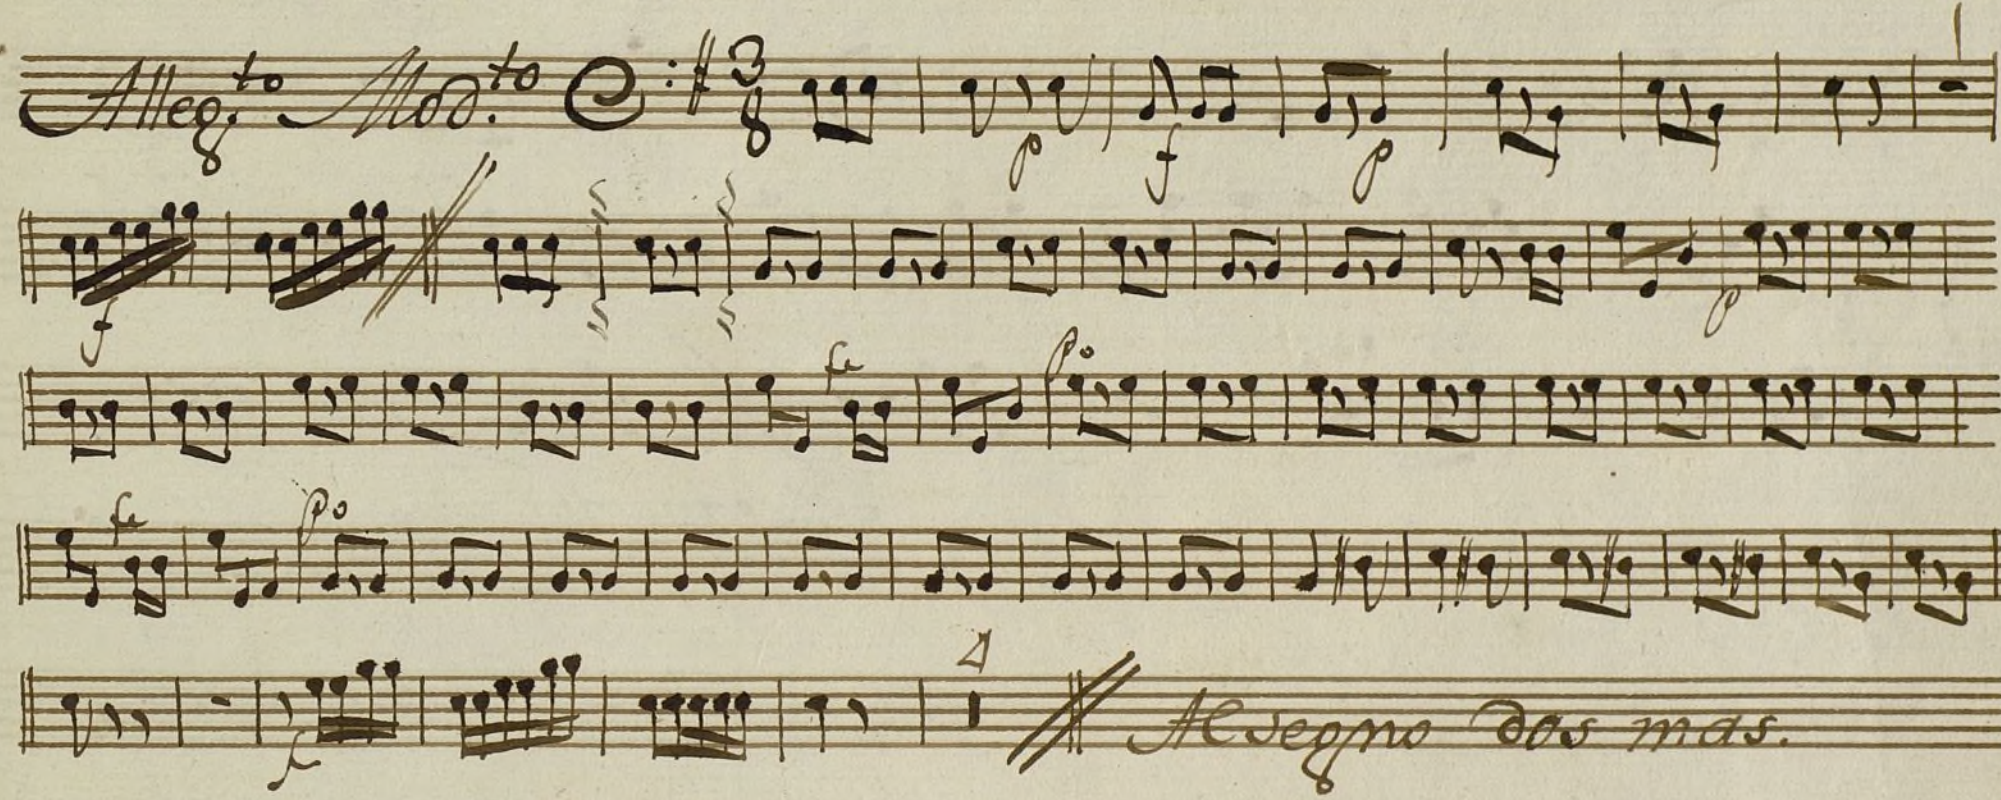 Alleg.to Mod.to 3/8
p f p
f p
fe po
fe po
4
f Al segno dos mas.